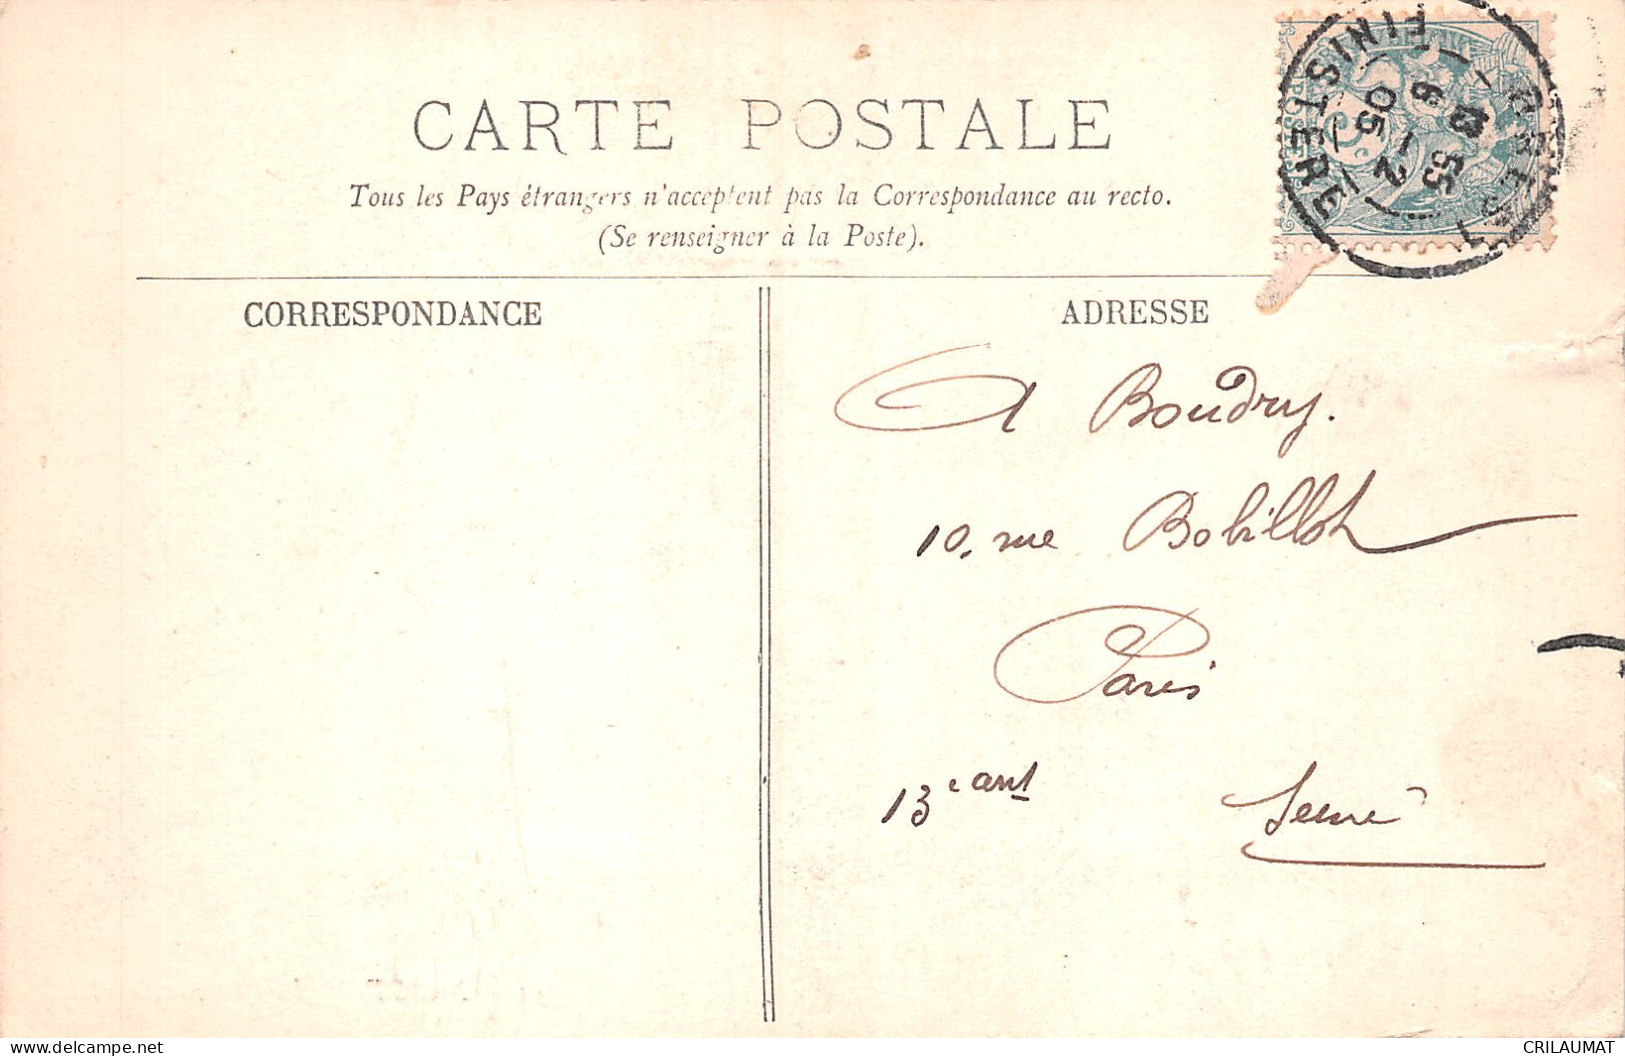 CARTE POSTALE
Tous les Pays étrangers n'acceptent pas la Correspondance au recto.
(Se renseigner à la Poste).
BREST
FINISTERE
05
CORRESPONDANCE
ADRESSE
A Boudry.
10, rue Bobillot
Paris
13e arrt
Seine
CRILAUMAT